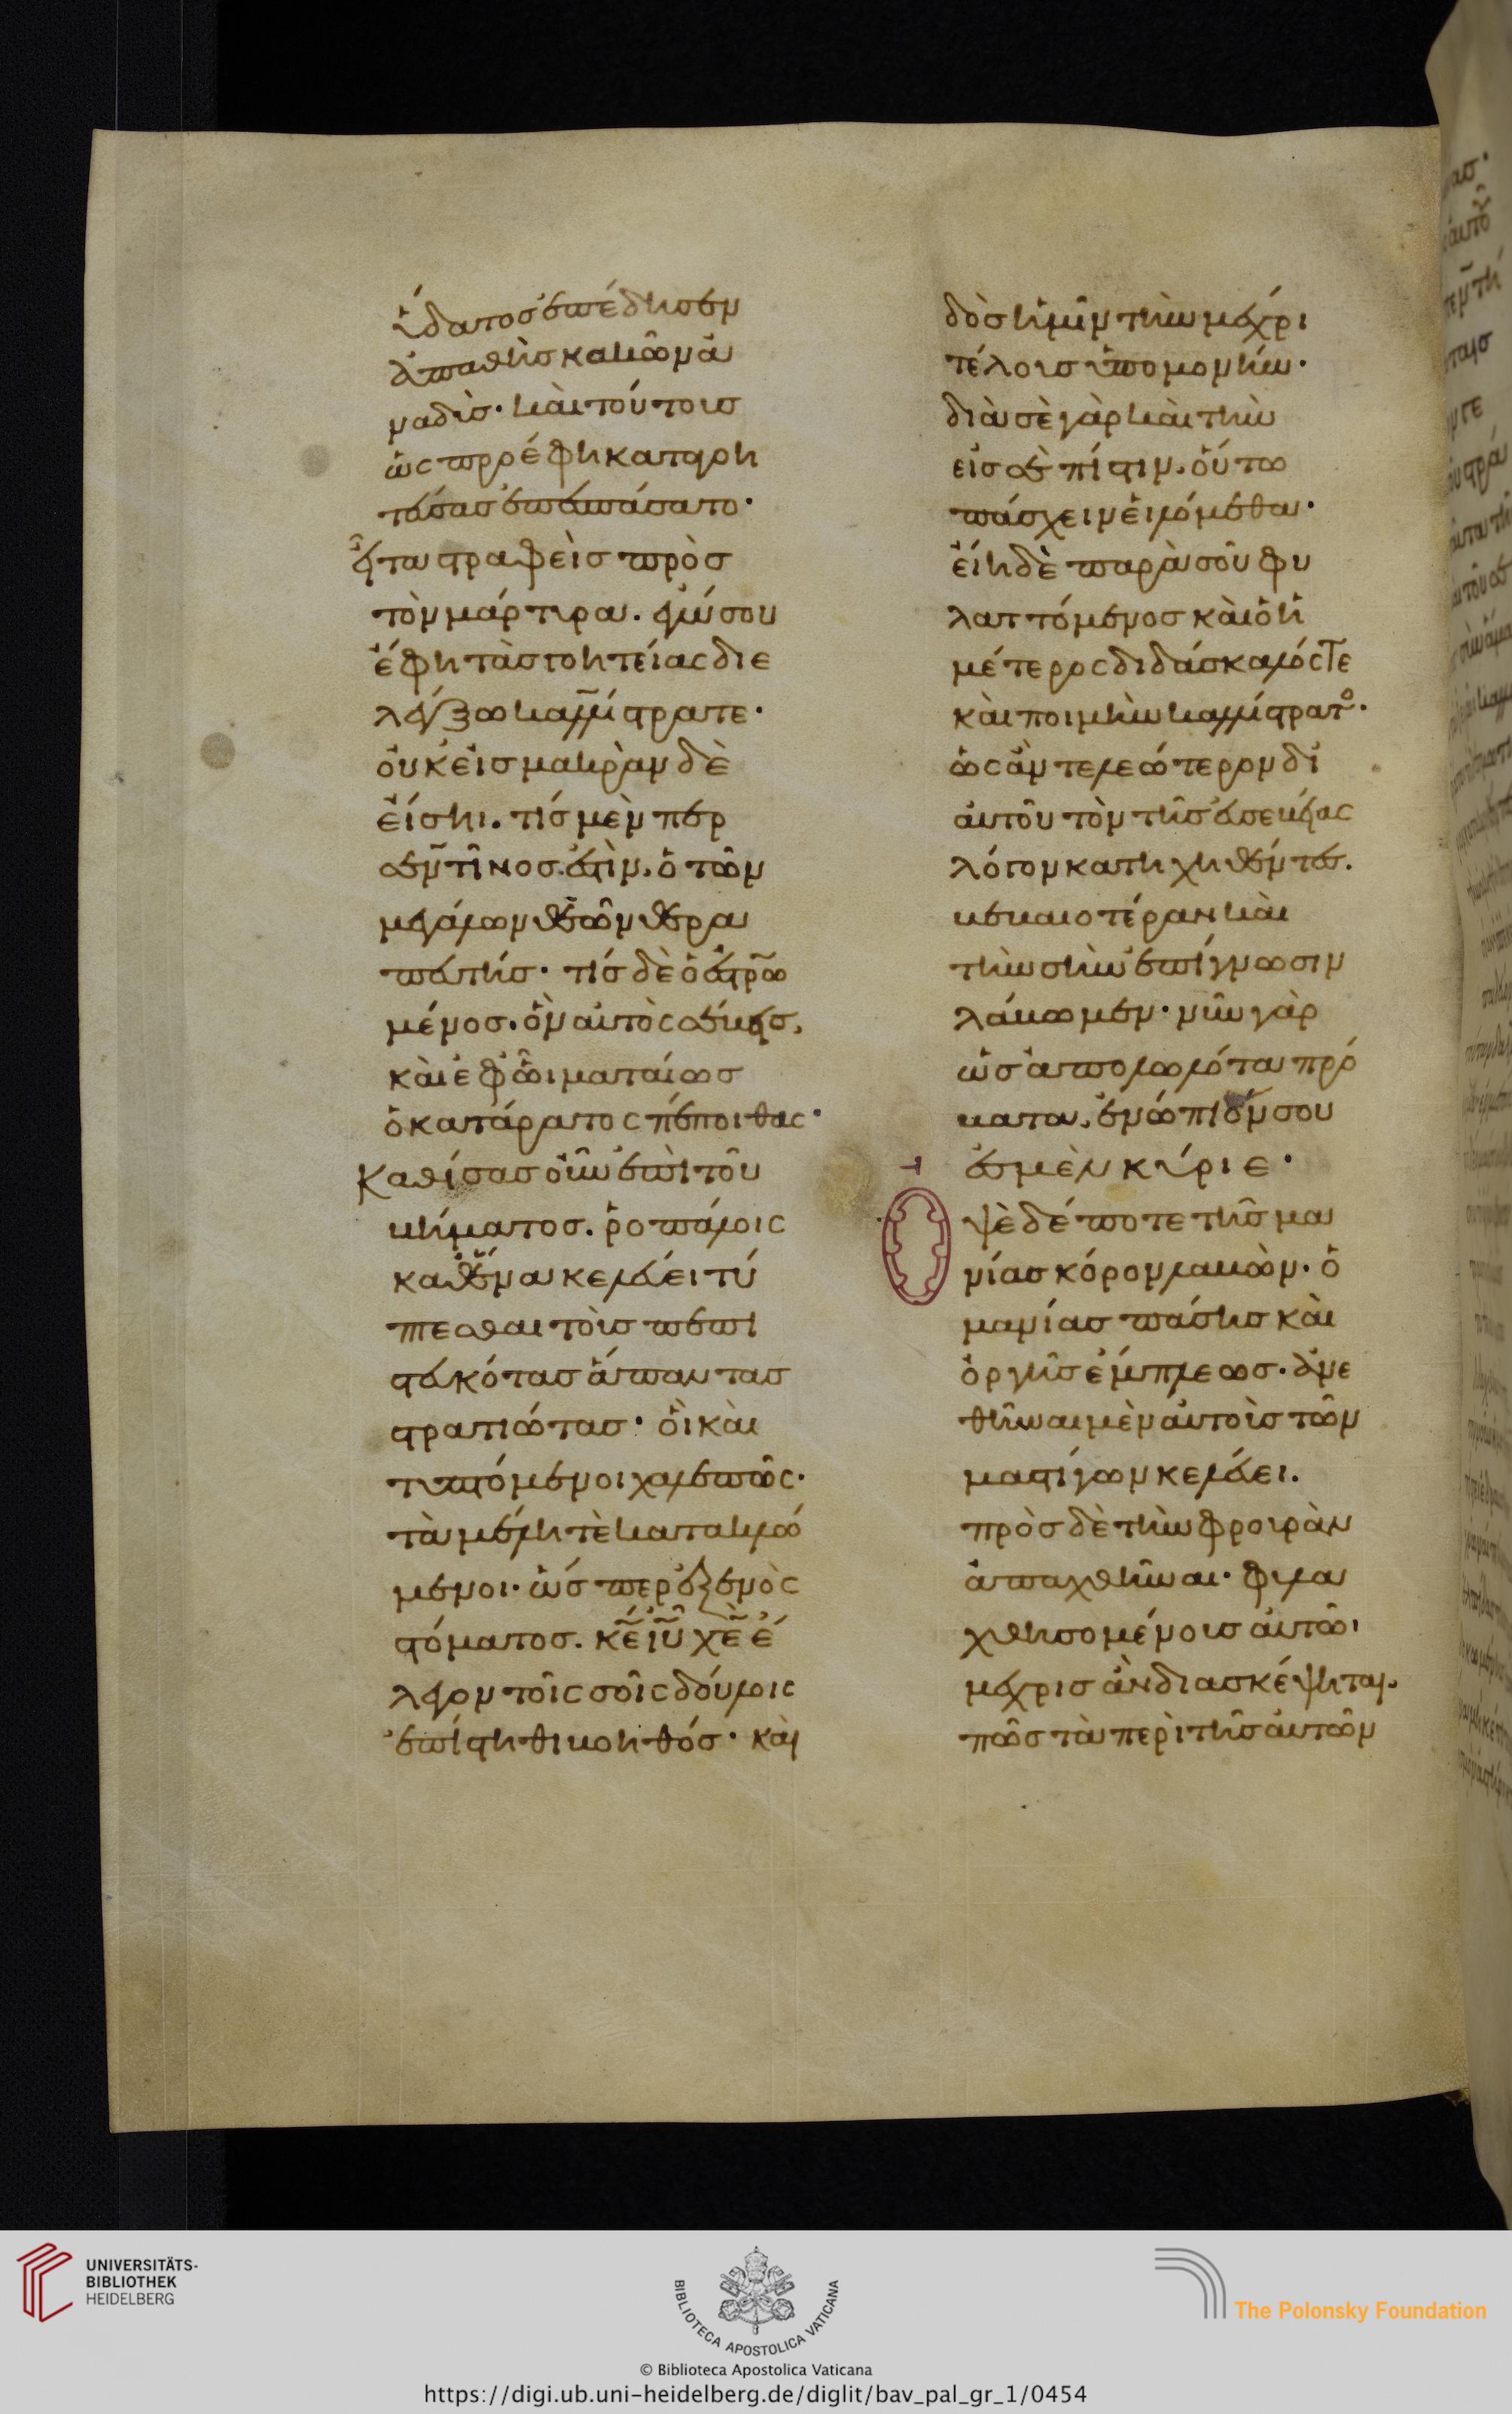 ὕδατος ἐπέδησεν
ἀπαθὴς κακῶν ἀ
ναδὺς· καὶ τούτους
ὡς προέφη καταγοη
τεύσας ἐπεσπάσατο·
εἶτα στραφεὶς πρὸς
τὸν μάρτυρα. ἐγώ σου
ἔφη τὰς γοητείας διε
λέγξω καλλίστρατε·
οὐκ εἰς μακρὰν δὲ
εἴσηι. τίς μὲν περ
σεντῖνος ἐστὶν. ὁ τῶν
μεγάλων θεῶν θερα
πευτής· τίς δὲ ὁ ἐστρ̅ω
μένος. ὃν αὐτὸς σέβεις,
καὶ ἐφ ὧι ματαίως
ὁ κατάρατος πέποιθας·
Καθίσας οὖν ἐπὶ τοῦ
βήματος. ῥοπάλοις
καθ ἕνα κελεύει τύ
πτεσθαι τοὺς πεπι
στευκότας ἅπαντας
στρατιώτας· οἳ καὶ
τυπτόμενοι χαλεπῶς·
τὰ μέλη τὲ κατακλώ
μενοι· ὥσπερ ἐξ ἑνὸς
στόματος. κ̅ε̅ ἰ̅υ̅ χ̅ε̅ ἔ
λεγον τοῖς σοῖς δούλοις
ἐπίστηθι βοηθός· καὶ
δὸς ἡμῖν τὴν μέχρι
τέλους ὑπομονήν·
διὰ σὲ γὰρ καὶ τὴν
εἰς σὲ πίστιν. οὕτω
πάσχειν εἱλόμεθα·
εἴη δὲ παρὰ σοῦ φυ
λαττόμενος καὶ ὁ ἡ
μέτερος διδάσκαλός τε
καὶ ποιμὴν καλλίστρατο·
ὡς ἂν τελεώτερον δι
αὐτοῦ τὸν τῆς εὐσεβείας
λόγον κατηχηθέντες.
βεβαιοτέραν καὶ
τὴν σὴν ἐπίγνωσιν
λάβωμεν· νῦν γὰρ
ὡς ἀπολωλότα πρό
βατα, ἐνώπιόν σου
ἐσμὲν κύριε·
Ὀψὲ δέ ποτε τῆς μα
νίας κόρον λαβὼν· ὁ
μανίας πάσης καὶ
ὀργῆς ἔμπλεως· ἀνε
θῆναι μὲν αὐτοὺς τῶν
μαστίγων κελεύει.
πρὸς δὲ τὴν φρουρὰν
ἀπαχθῆναι· φυλα
χθησομένους αὐτῶι
μέχρις ἂν διασκέψηται,
πῶς τὰ περὶ τῆς αὐτῶν
UNIVERSITÄTS-
BIBLIOTHEK
HEIDELBERG
BIBLIOTECA APOSTOLICA VATICANA
The Polonsky Foundation
© Biblioteca Apostolica Vaticana
https://digi.ub.uni-heidelberg.de/diglit/bav_pal_gr_1/0454